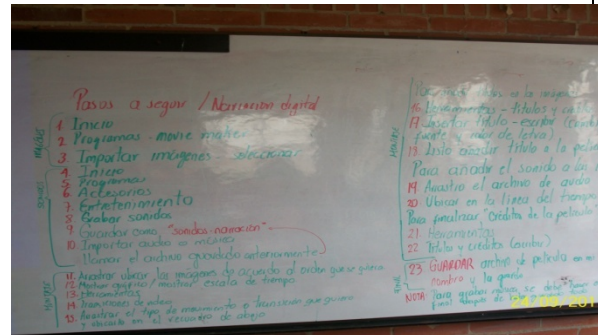 Pasos a seguir / Narración digital
1 Inicio
2 Programas - movie maker
3 Importar imágenes - seleccionar
4. Inicio
5 Programas
6 Accesorios
7 Entretenimiento
8 Grabar sonidos
9 Guardar como "sonidos-narración"
10. Importar audio o música
llamar el archivo guardado anteriormente
11. Arrastrar ubicar las imágenes de acuerdo al orden que se quiera
12 Mostrar escala de tiempo
13. Herramientas
14 Transiciones de video
15. Arrastrar el tipo de movimiento o transición que quiera
y ubicarlo en el recuadro de abajo
16 Herramientas - títulos y
17 Insertar título - escribir
fuente y color de letra)
18 Listo añadir título a la
Para añadir el sonido a las
19 Arrastra el archivo de audio
20 Ubicar en la línea del tiempo
Para finalizar "Créditos de la película"
21. Herramientas
22 Títulos y créditos (escribir)
23 GUARDAR archivo de película en mi
nombro y la guardo
NOTA: Para grabar se debe
24/09/201
SONIDO
MONTAJE